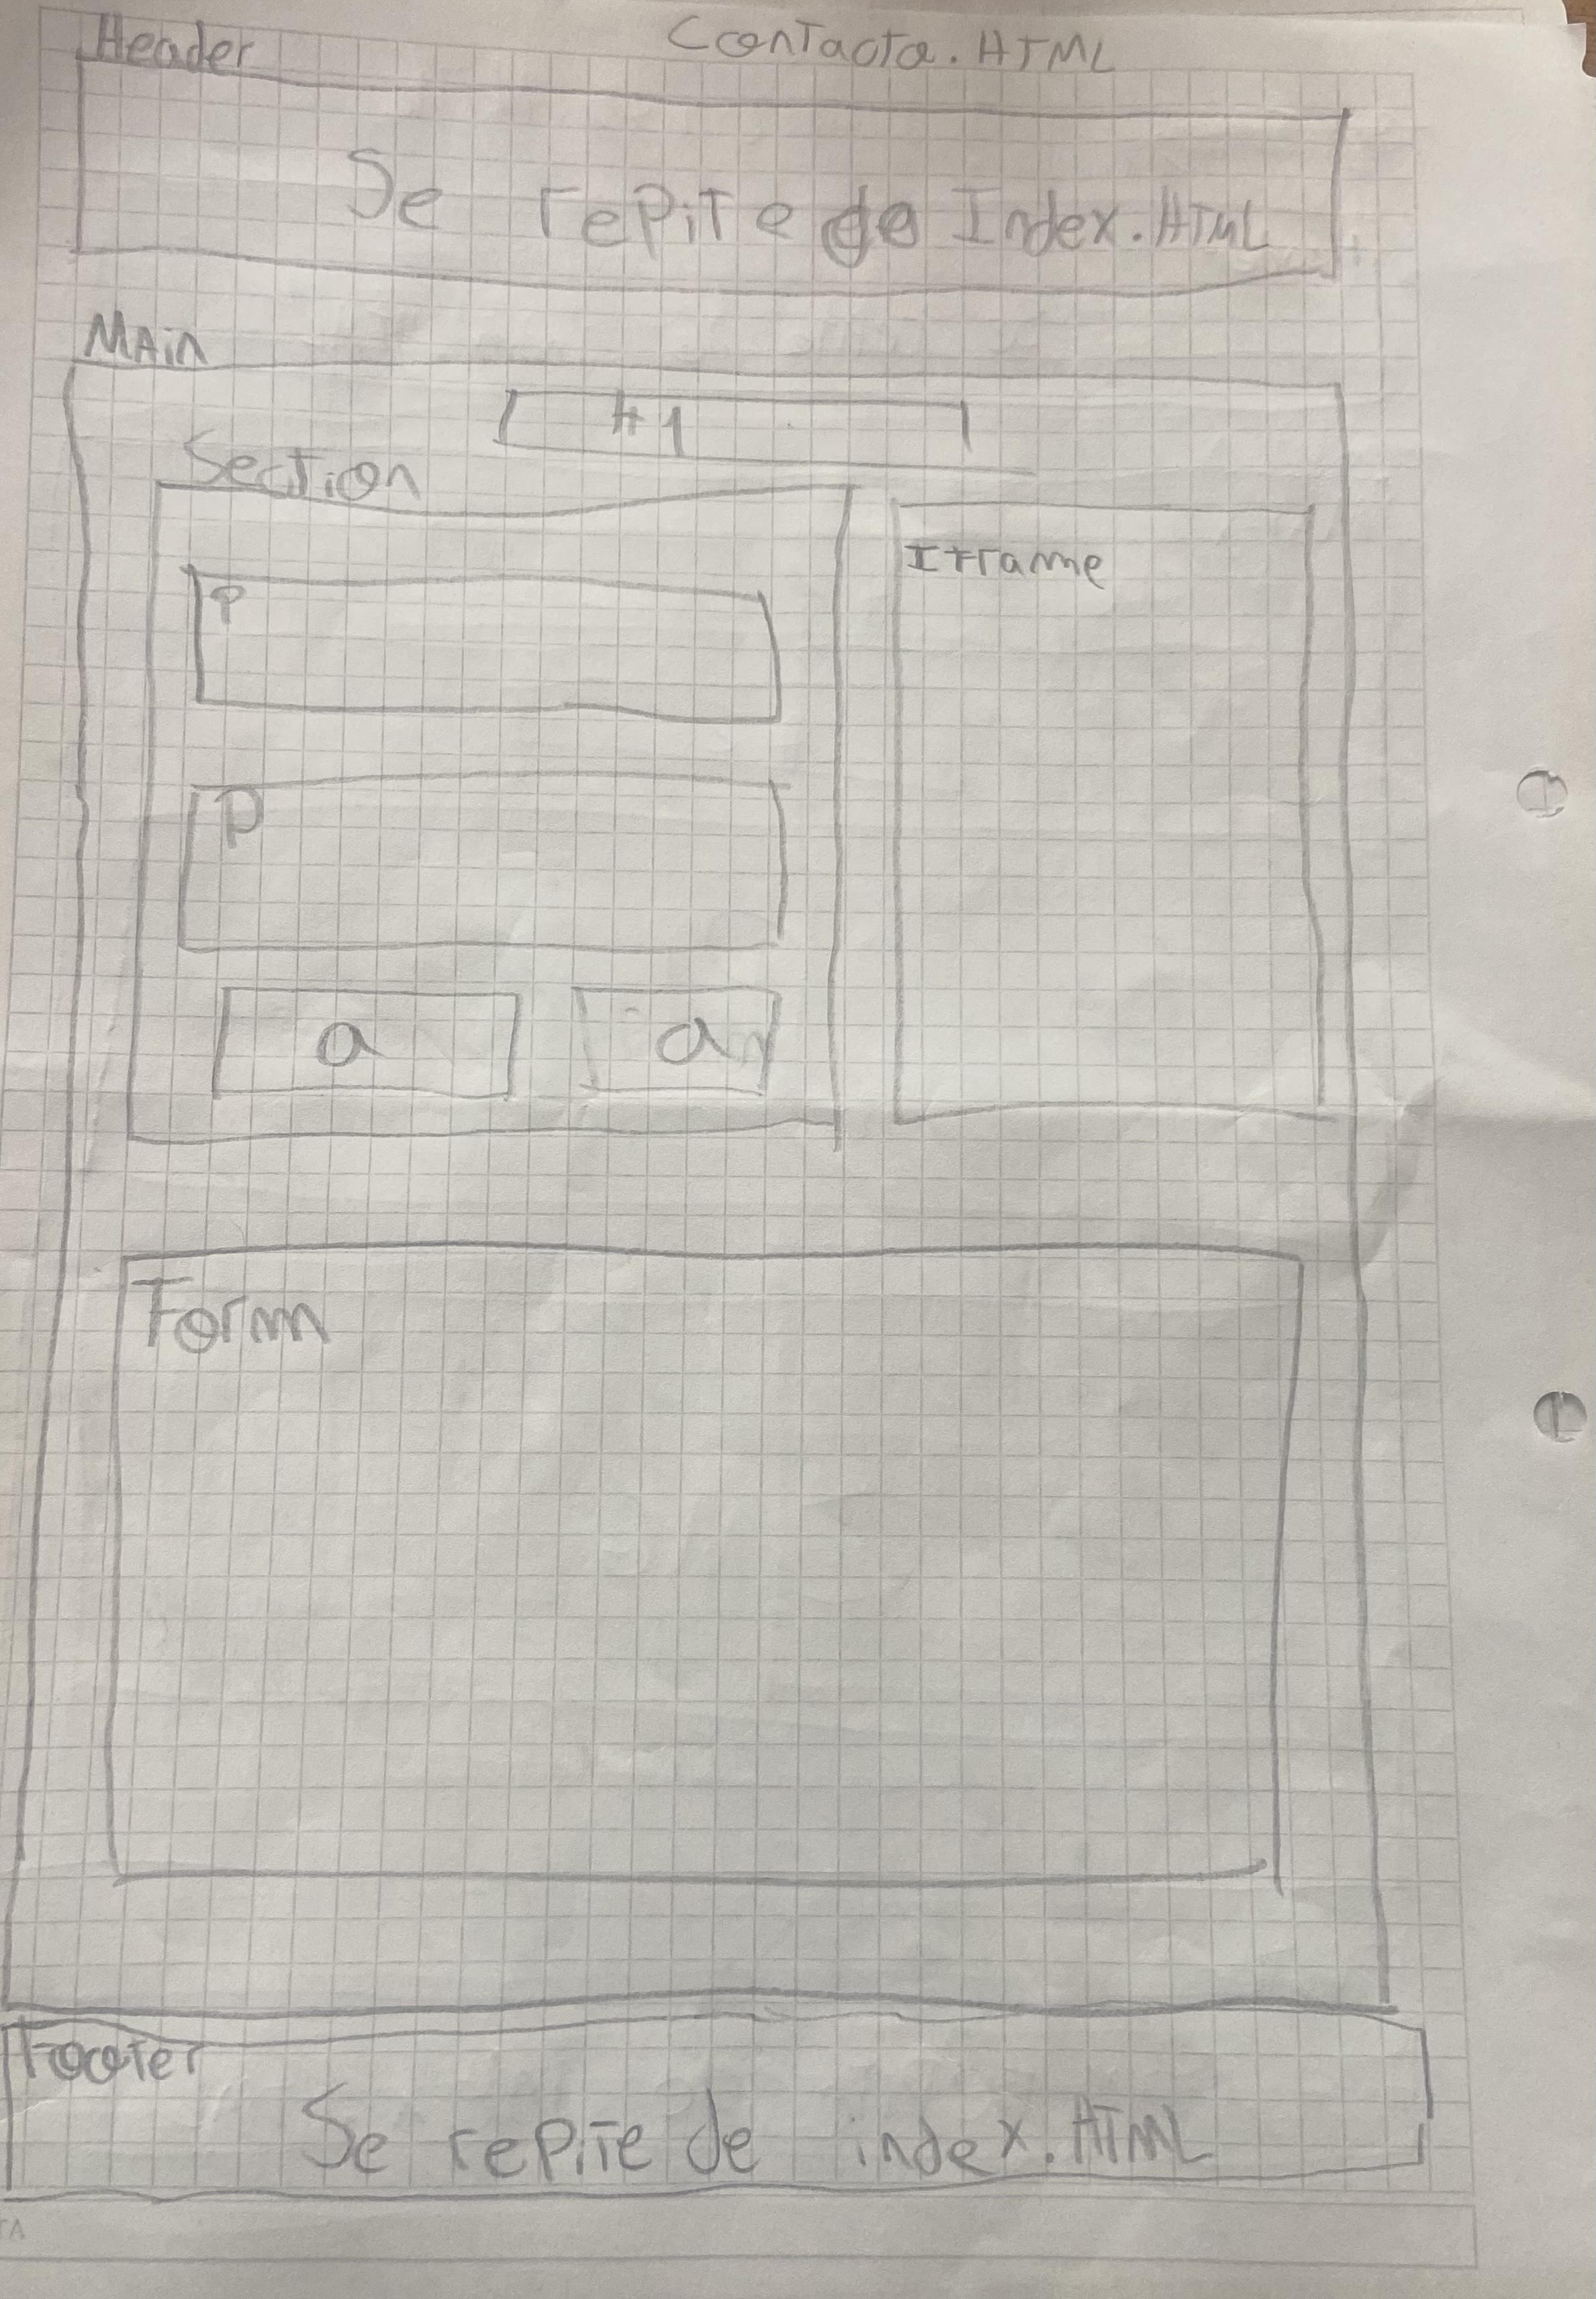 Header
Contacta.HTML
Se repite de Index.HTML
MAin
H1
Section
Iframe
P
P
a
a
Form
Footer
Se repite de index.HTML
TA